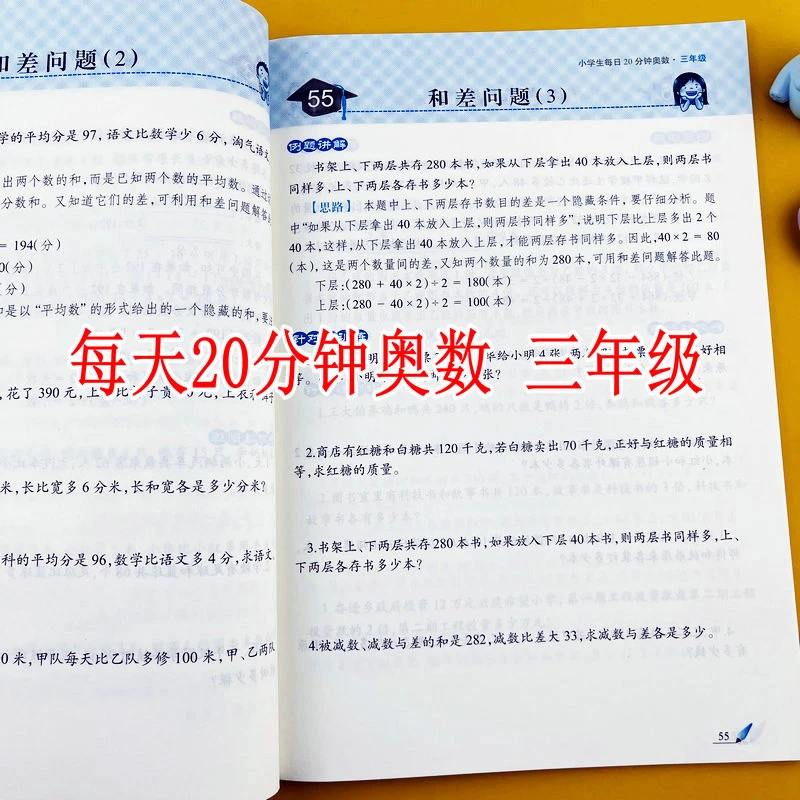 和差问题(2)
学的平均分是97,语文比数学少6分,淘气语文
出两个数的和,而是已知两个数的平均数。通过
分数和。又知道它们的差,可利用和差问题解答
= 194(分)
0(分)
(分)
和是以“平均数”的形式给出的一个隐藏的和,要
花了390元,上
米,长比宽多6分米,长和宽各是多少分米?
科的平均分是96,数学比语文多4分,求语文
0米,甲队每天比乙队多修100米,甲、乙两队
小学生每日20分钟奥数·三年级
55
和差问题(3)
例题讲解
书架上、下两层共存280本书,如果从下层拿出40本放入上层,则两层书
同样多,上、下两层各存书多少本?
【思路】 本题中上、下两层存书数目的差是一个隐藏条件,要仔细分析。题
中“如果从下层拿出40本放入上层,则两层书同样多”,说明下层比上层多出2个
40本,这样,从下层拿出40本放入上层,才能两层存书同样多。因此,40×2 = 80
(本),这是两个数量间的差,又知两个数量的和为280本,可用和差问题解答此题。
下层:(280 + 40×2)÷2 = 180(本)
上层:(280 − 40×2)÷2 = 100(本)
每天20分钟奥数 三年级
2.商店有红糖和白糖共120千克,若白糖卖出70千克,正好与红糖的质量相
等,求红糖的质量。
3.书架上、下两层共存280本书,如果放入下层40本书,则两层书同样多,上、
下两层各存书多少本?
4.被减数、减数与差的和是282,减数比差大33,求减数与差各是多少。
55